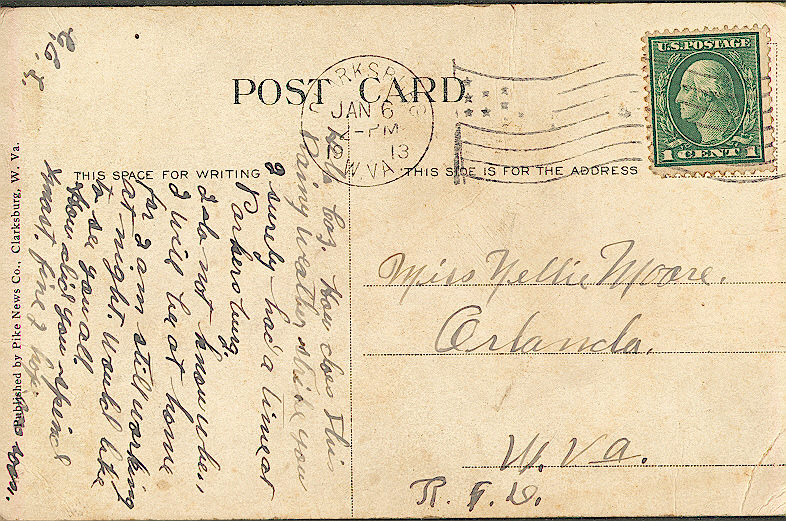 POST CARD
CLARKSBURG
JAN 6
2-PM
1913
W.VA.
U.S. POSTAGE
1 CENT 1
THIS SPACE FOR WRITING
THIS SIDE IS FOR THE ADDRESS
Hello Coz. How does this
rainy weather strike you
I surely had a time at
Parkersburg.
I do not know when
I will be at home
for I am still working
at night. Would like
to see you all.
How did you spend
Xmast. fine I hope.
soon.
Miss Nellie Moore.
Orlando,
W. Va.
R. F. D.
Published by Pike News Co., Clarksburg, W. Va.